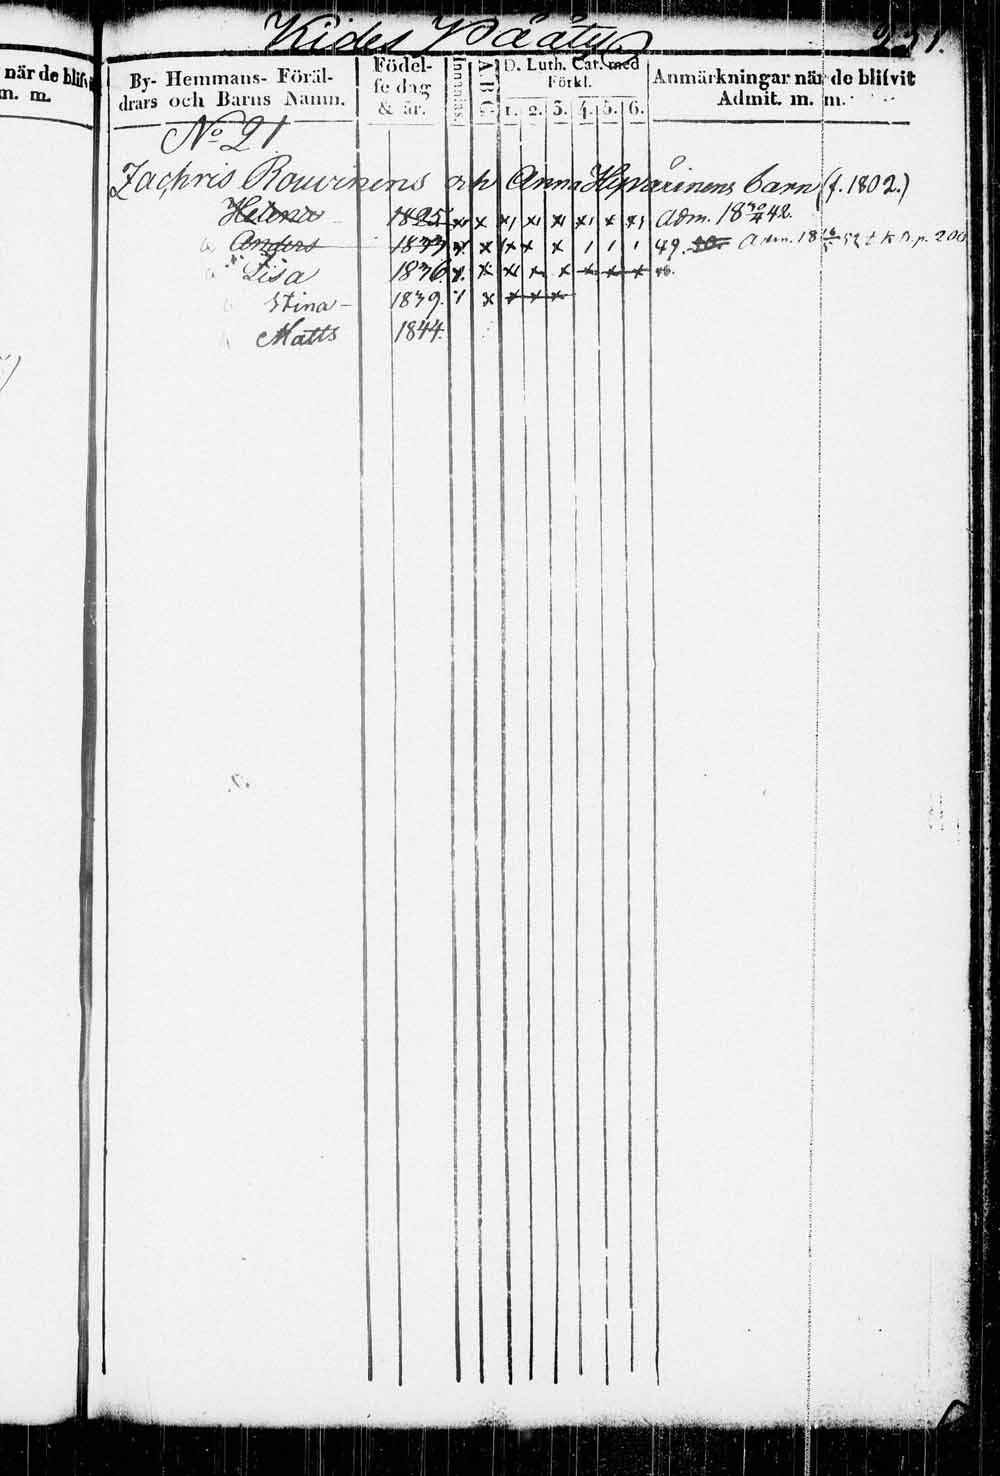 Kides Pääty
231.
när de blifvi
m. m.
By- Hemmans- Föräl-
drars och Barns Namn.
Födel-
se dag
& år.
Innanläs.
A B C
D. Luth. Cat. med
Förkl.
1. 2. 3. 4. 5. 6.
Anmärkningar när de blifvit
Admit. m. m.
No 21
Zachris Rouvinens och Anna Hirvoinens barn (f. 1802.)
Helena 1825 x x x x x x x x Adm. 18 30/4 42.
Anders 1833 x x x x x 1 1 1 49. Adm. 18 52 t K B. p. 200
Lisa 1836 x. x x x x x x x
Stina 1839. 1 x x x x
Matts 1844.